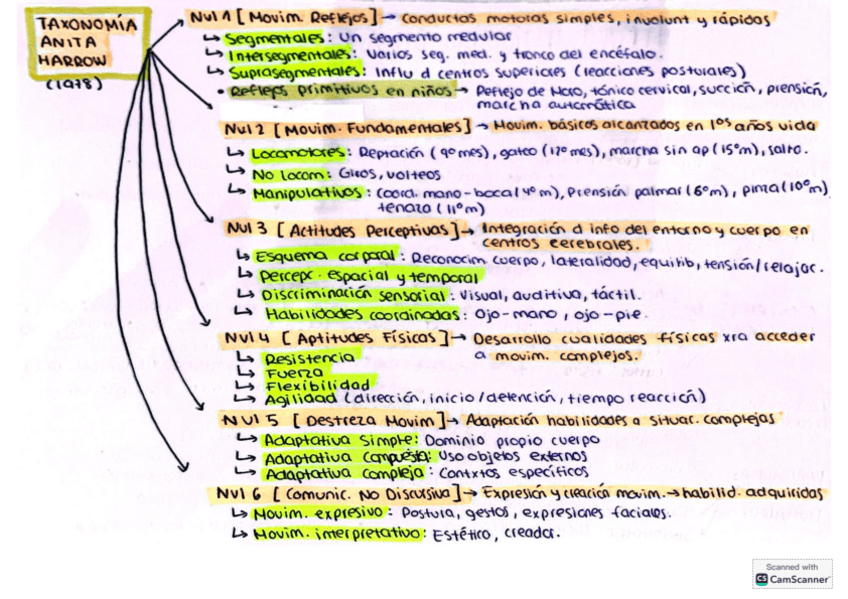 TAXONOMÍA
ANITA
HARROW
(1978)
NVl 1 [Movim. Reflejos] → Conductas motoras simples, involunt y rápidas
↳ Segmentales: Un segmento medular
↳ Intersegmentales: Varios seg. med. y tronco del encéfalo.
↳ Suprasegmentales: Influ d centros superiores (reacciones posturales)
• Reflejos primitivos en niños → Reflejo de Moro, tónico cervical, succión, prensión,
marcha automática
NVl 2 [Movim. Fundamentales] → Movim. básicos alcanzados en 1os años vida
↳ Locomotores: Reptación (9º mes), gateo (12º mes), marcha sin ap (15º m), salto.
↳ No Locom: Giros, volteos
↳ Manipulativos: Coord. mano-boca (4º m), Prensión palmar (6º m), pinza (10º m)
tenaza (11º m)
NVl 3 [Actitudes Perceptivas] → Integración d info del entorno y cuerpo en
centros cerebrales.
↳ Esquema corporal: Reconocim cuerpo, lateralidad, equilib, tensión/relajac.
↳ Percepc. espacial y temporal
↳ Discriminación sensorial: Visual, auditiva, táctil.
↳ Habilidades coordinadas: Ojo-mano, ojo-pie.
NVl 4 [Aptitudes Físicas] → Desarrollo cualidades físicas xra acceder
a movim. complejos.
↳ Resistencia
↳ Fuerza
↳ Flexibilidad
↳ Agilidad (dirección, inicio/detención, tiempo reacción)
NVl 5 [Destreza Movim] → Adaptación habilidades a situac. complejas
↳ Adaptativa Simple: Dominio propio cuerpo
↳ Adaptativa compuesta: Uso objetos externos
↳ Adaptativa compleja: Contxtos específicos
NVl 6 [Comunic. No Discursiva] → Expresión y creación movim. → habilid. adquiridas
↳ Movim. expresivo: Postura, gestos, expresiones faciales.
↳ Movim. interpretativo: Estético, creador.
Scanned with
CS CamScanner